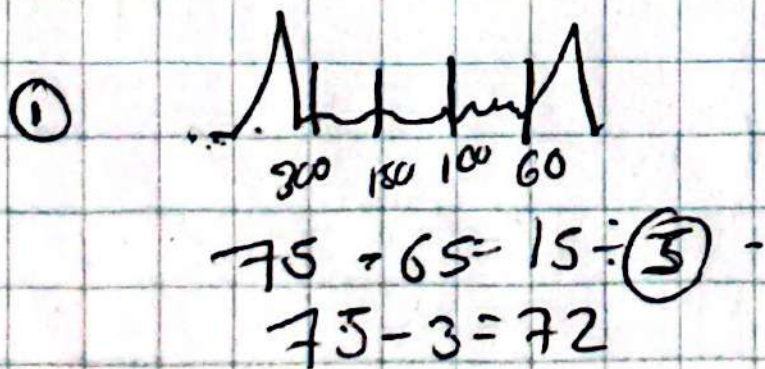 ①
300 150 100 60
75 - 65 = 15 ÷ 5 -
75 - 3 = 72